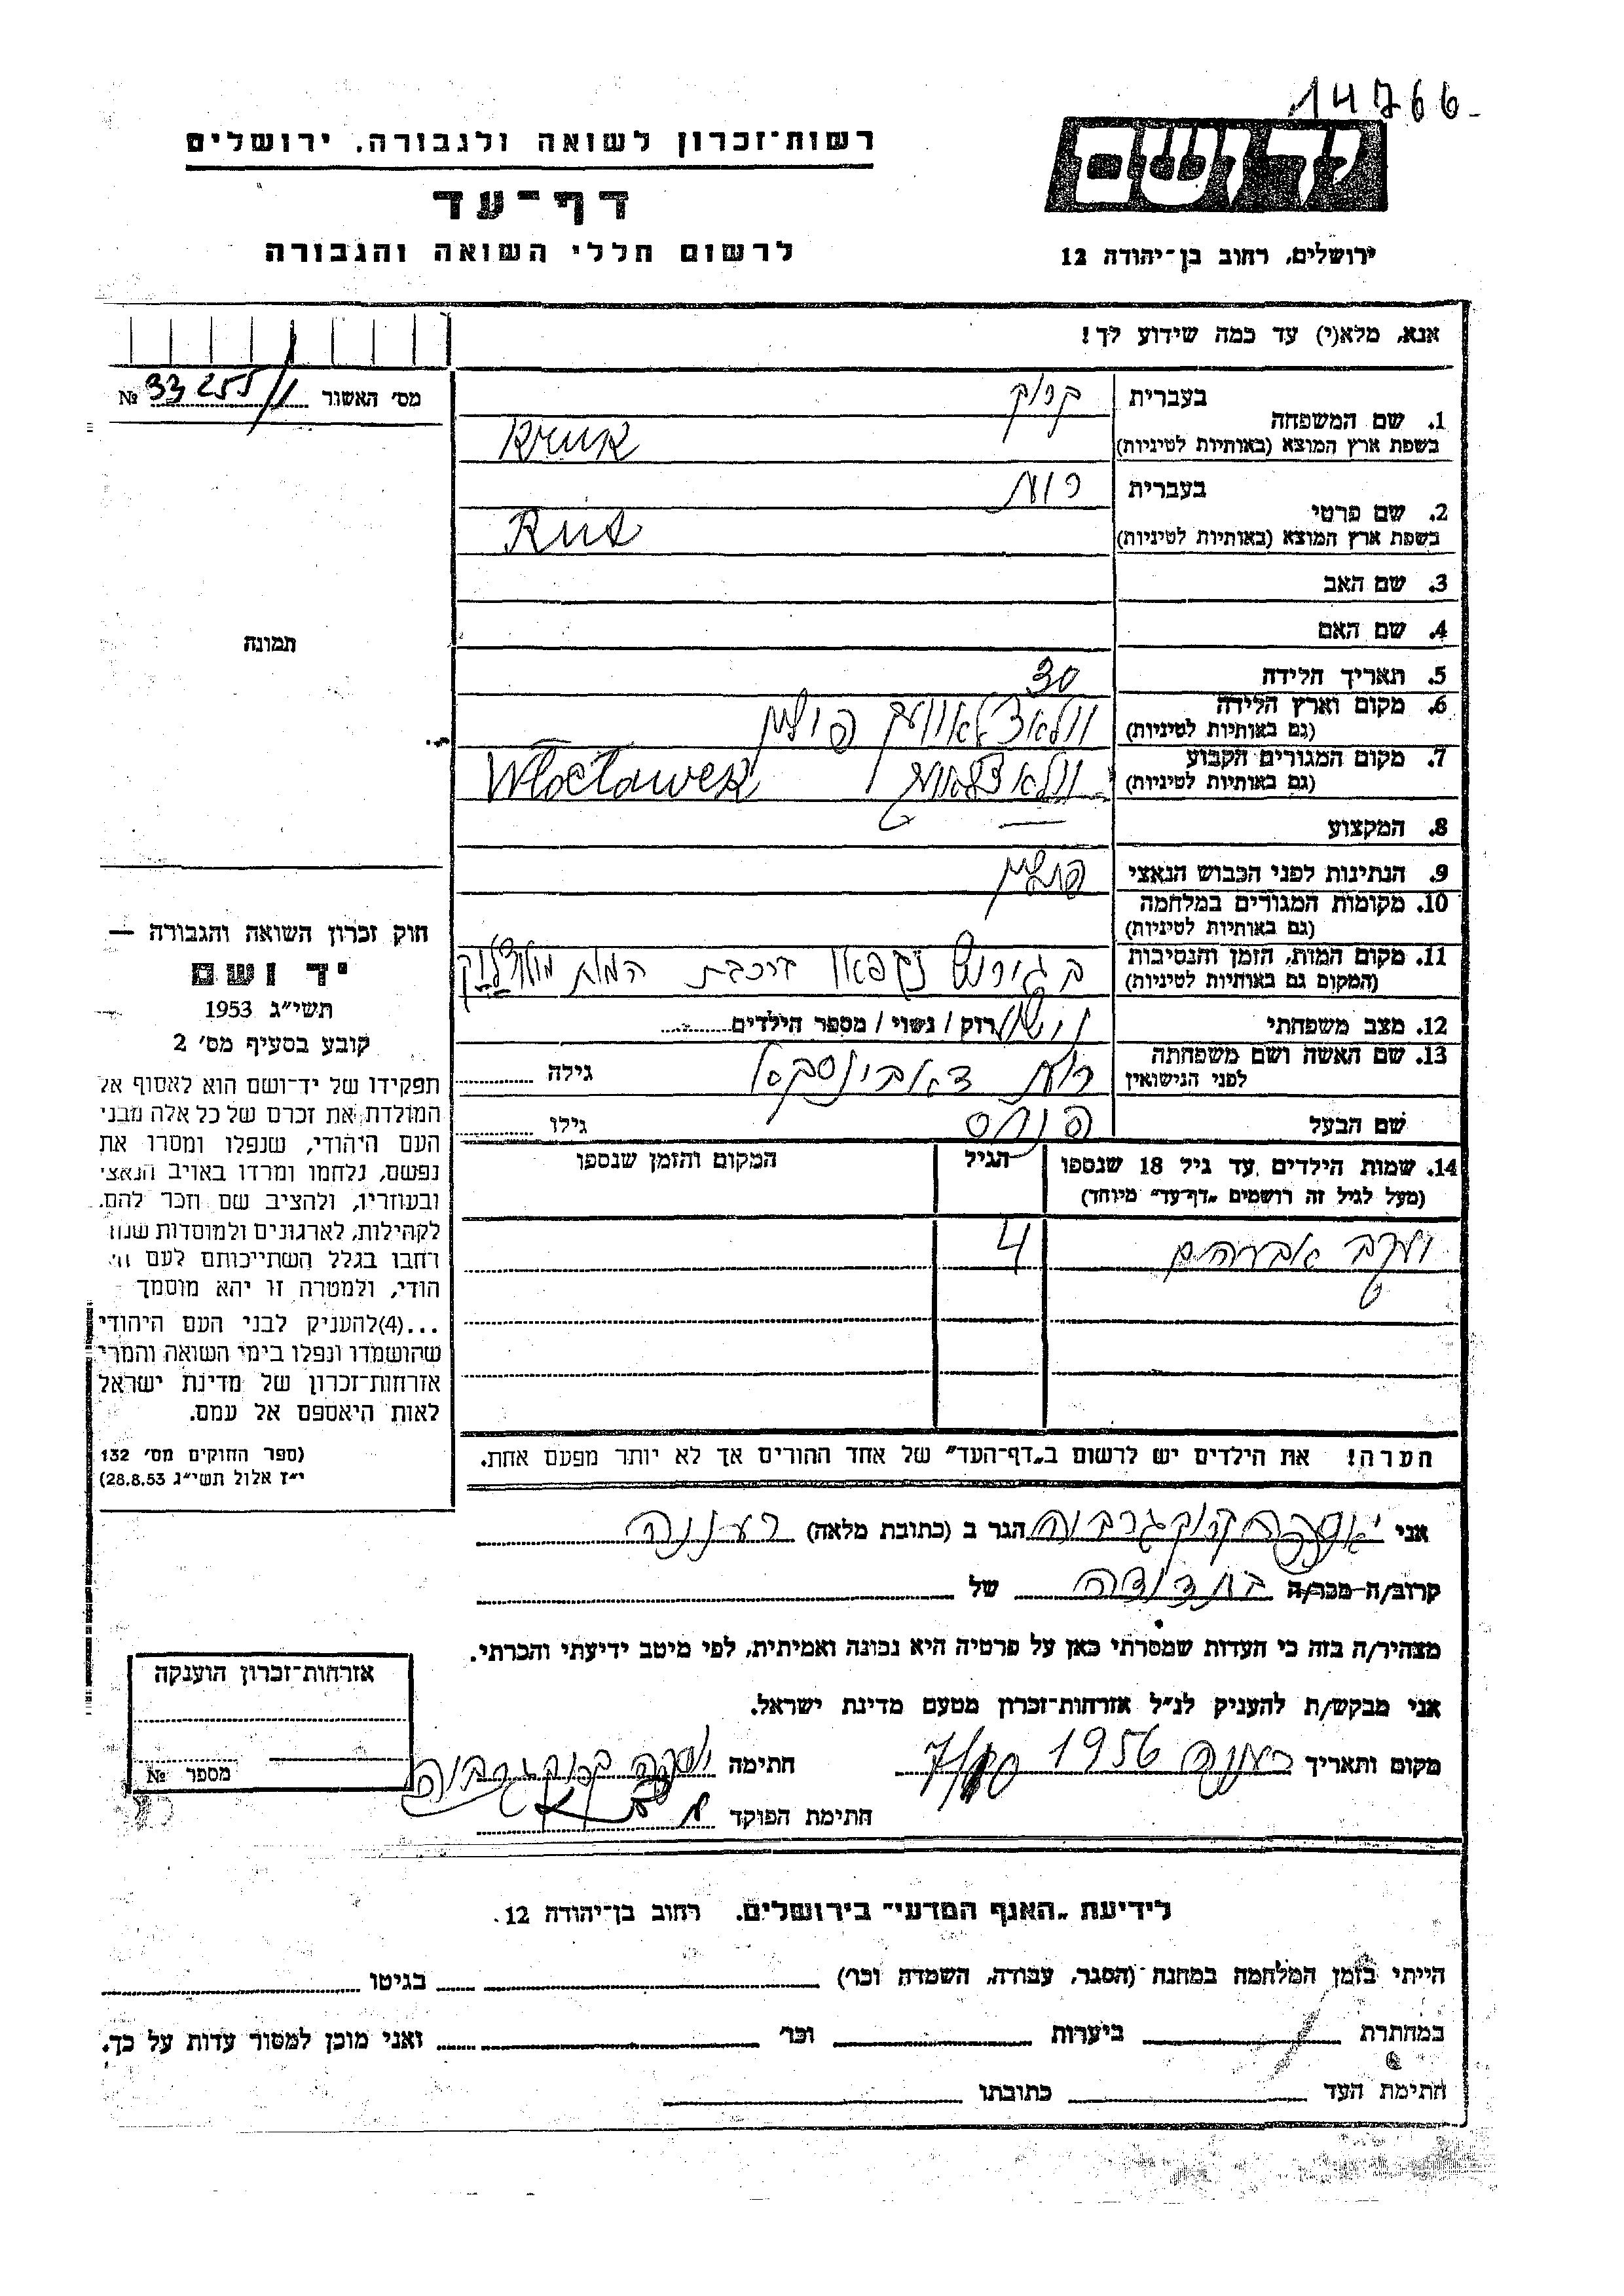 14766-
רשות־זכרון לשואה ולגבורה, ירושלים
יד ושם
דף־עד
לרשום חללי השואה והגבורה
ירושלים, רחוב בן־יהודה 12
אנא, מלא(י) עד כמה שידוע לך!
מס׳ האשור 33255/1 №
1. שם המשפחה
בעברית קרוק
בשפת ארץ המוצא (באותיות לטיניות) Kruk
2. שם פרטי
בעברית רות
בשפת ארץ המוצא (באותיות לטיניות)
3. שם האב
4. שם האם
תמונה
5. תאריך הלידה 30
6. מקום וארץ הלידה
(גם באותיות לטיניות) פולין
7. מקום המגורים הקבוע
(גם באותיות לטיניות) Włocławek
8. המקצוע —
9. הנתינות לפני הכבוש הנאצי פולנית
10. מקומות המגורים במלחמה
(גם באותיות לטיניות)
11. מקום המות, הזמן והנסיבות
(המקום גם באותיות לטיניות) המות
12. מצב משפחתי רוק / נשוי / מספר הילדים
13. שם האשה ושם משפחתה
לפני הנישואין רות גילה
שם הבעל פנחס גילו
14. שמות הילדים עד גיל 18 שנספו הגיל המקום והזמן שנספו
(מעל לגיל זה רושמים „דף־עד״ מיוחד)
יעקב אברהם 4
הערה! את הילדים יש לרשום ב„דף־העד״ של אחד ההורים אך לא יותר מפעם אחת.
חוק זכרון השואה והגבורה —
יד ושם
תשי״ג 1953
קובע בסעיף מס׳ 2
תפקידו של יד־ושם הוא לאסוף אל
המולדת את זכרם של כל אלה מבני
העם היהודי, שנפלו ומסרו את
נפשם, נלחמו ומרדו באויב הנאצי
ובעוזריו, ולהציב שם וזכר להם,
לקהילות, לארגונים ולמוסדות שנח־
רחבו בגלל השתייכותם לעם הי־
הודי, ולמטרה זו יהא מוסמך —
...(4)להעניק לבני העם היהודי
שהושמדו ונפלו בימי השואה והמרי
אזרחות־זכרון של מדינת ישראל
לאות היאספם אל עמם.
(ספר החוקים מס׳ 132
י״ז אלול תשי״ג 28.8.53)
אני הגר ב (כתובת מלאה) רעננה
קרוב/ה מכר/ה בת דודה של
מצהיר/ה בזה כי העדות שמסרתי כאן על פרטיה היא נכונה ואמיתית, לפי מיטב ידיעתי והכרתי.
אני מבקש/ת להעניק לנ״ל אזרחות־זכרון מטעם מדינת ישראל.
מקום ותאריך רעננה 1956 חתימה
חתימת הפוקד
אזרחות־זכרון הוענקה
מספר №
לידיעת „האגף המדעי״ בירושלים. רחוב בן־יהודה 12.
הייתי בזמן המלחמה במחנה (הסגר, עבודה, השמדה וכו׳) בגיטו
במחתרת ביערות וכו׳ ואני מוכן למסור עדות על כך.
חתימת העד כתובתו